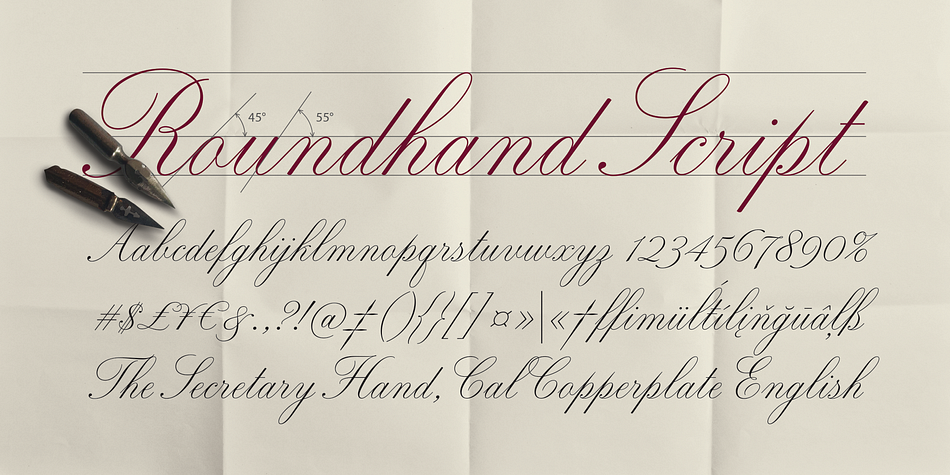 Roundhand Script
45° 55°
Aabcdefghijklmnopqrstuvwxyz 1234567890%
#$£¥€&.,?!@‡(){}[]¤»|«†
The Secretary Hand, Cal Copperplate English